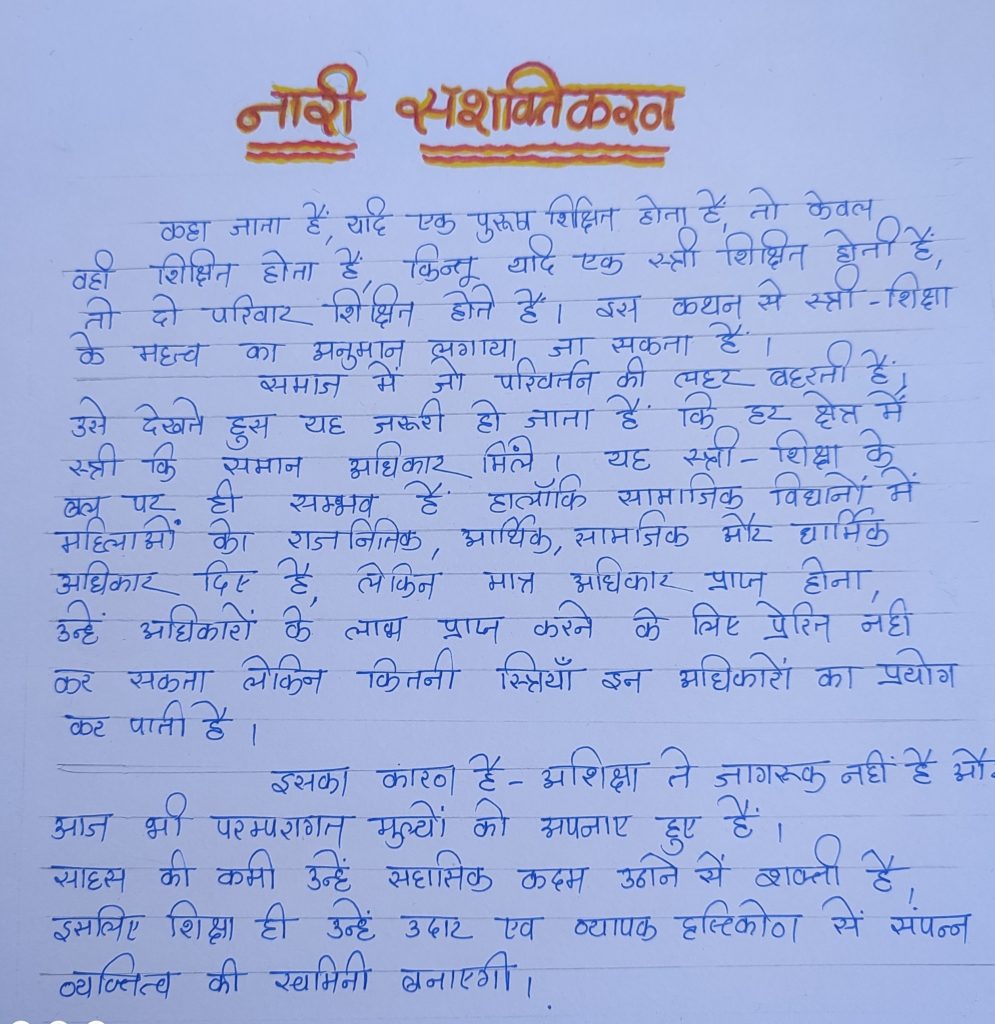 नारी सशक्तिकरन
कहा जाता हैं, यदि एक पुरूष शिक्षित होता है, तो केवल
वही शिक्षित होता हैं, किन्तू यदि एक स्त्री शिक्षित होती हैं,
तो दो परिवार शिक्षित होते हैं। इस कथन से स्त्री-शिक्षा
के महत्व का अनुमान लगाया जा सकता हैं।
समाज में जो परिवर्तन की लहर बहरती हैं,
उसे देखते हुस यह जरूरी हो जाता हैं कि हर क्षेत्र में
स्त्री कि समान अधिकार मिले। यह स्त्री-शिक्षा के
बल पर ही सम्भव हैं हालाँकि सामाजिक विधानों में
महिलाओं को राजनितिक, आर्थिक, सामाजिक और धार्मिक
अधिकार दिए है, लेकिन मात्र अधिकार प्राप्त होना,
उन्हें अधिकारों के लाभ प्राप्त करने के लिए प्रेरित नही
कर सकता लेकिन कितनी स्त्रियाँ इन अधिकारों का प्रयोग
कर पाती है।
इसका कारन है- अशिक्षा ते जागरूक नहीं है और
आज भी परम्परागत मुल्यों को अपनाए हुए हैं।
साहस की कमी उन्हें सहासिक कदम उठाने सें शक्ती है,
इसलिए शिक्षा ही उन्हें उदार एव व्यापक दृष्टिकोण सें संपन्न
व्यक्तित्व की स्वामिनी बनाएगी।